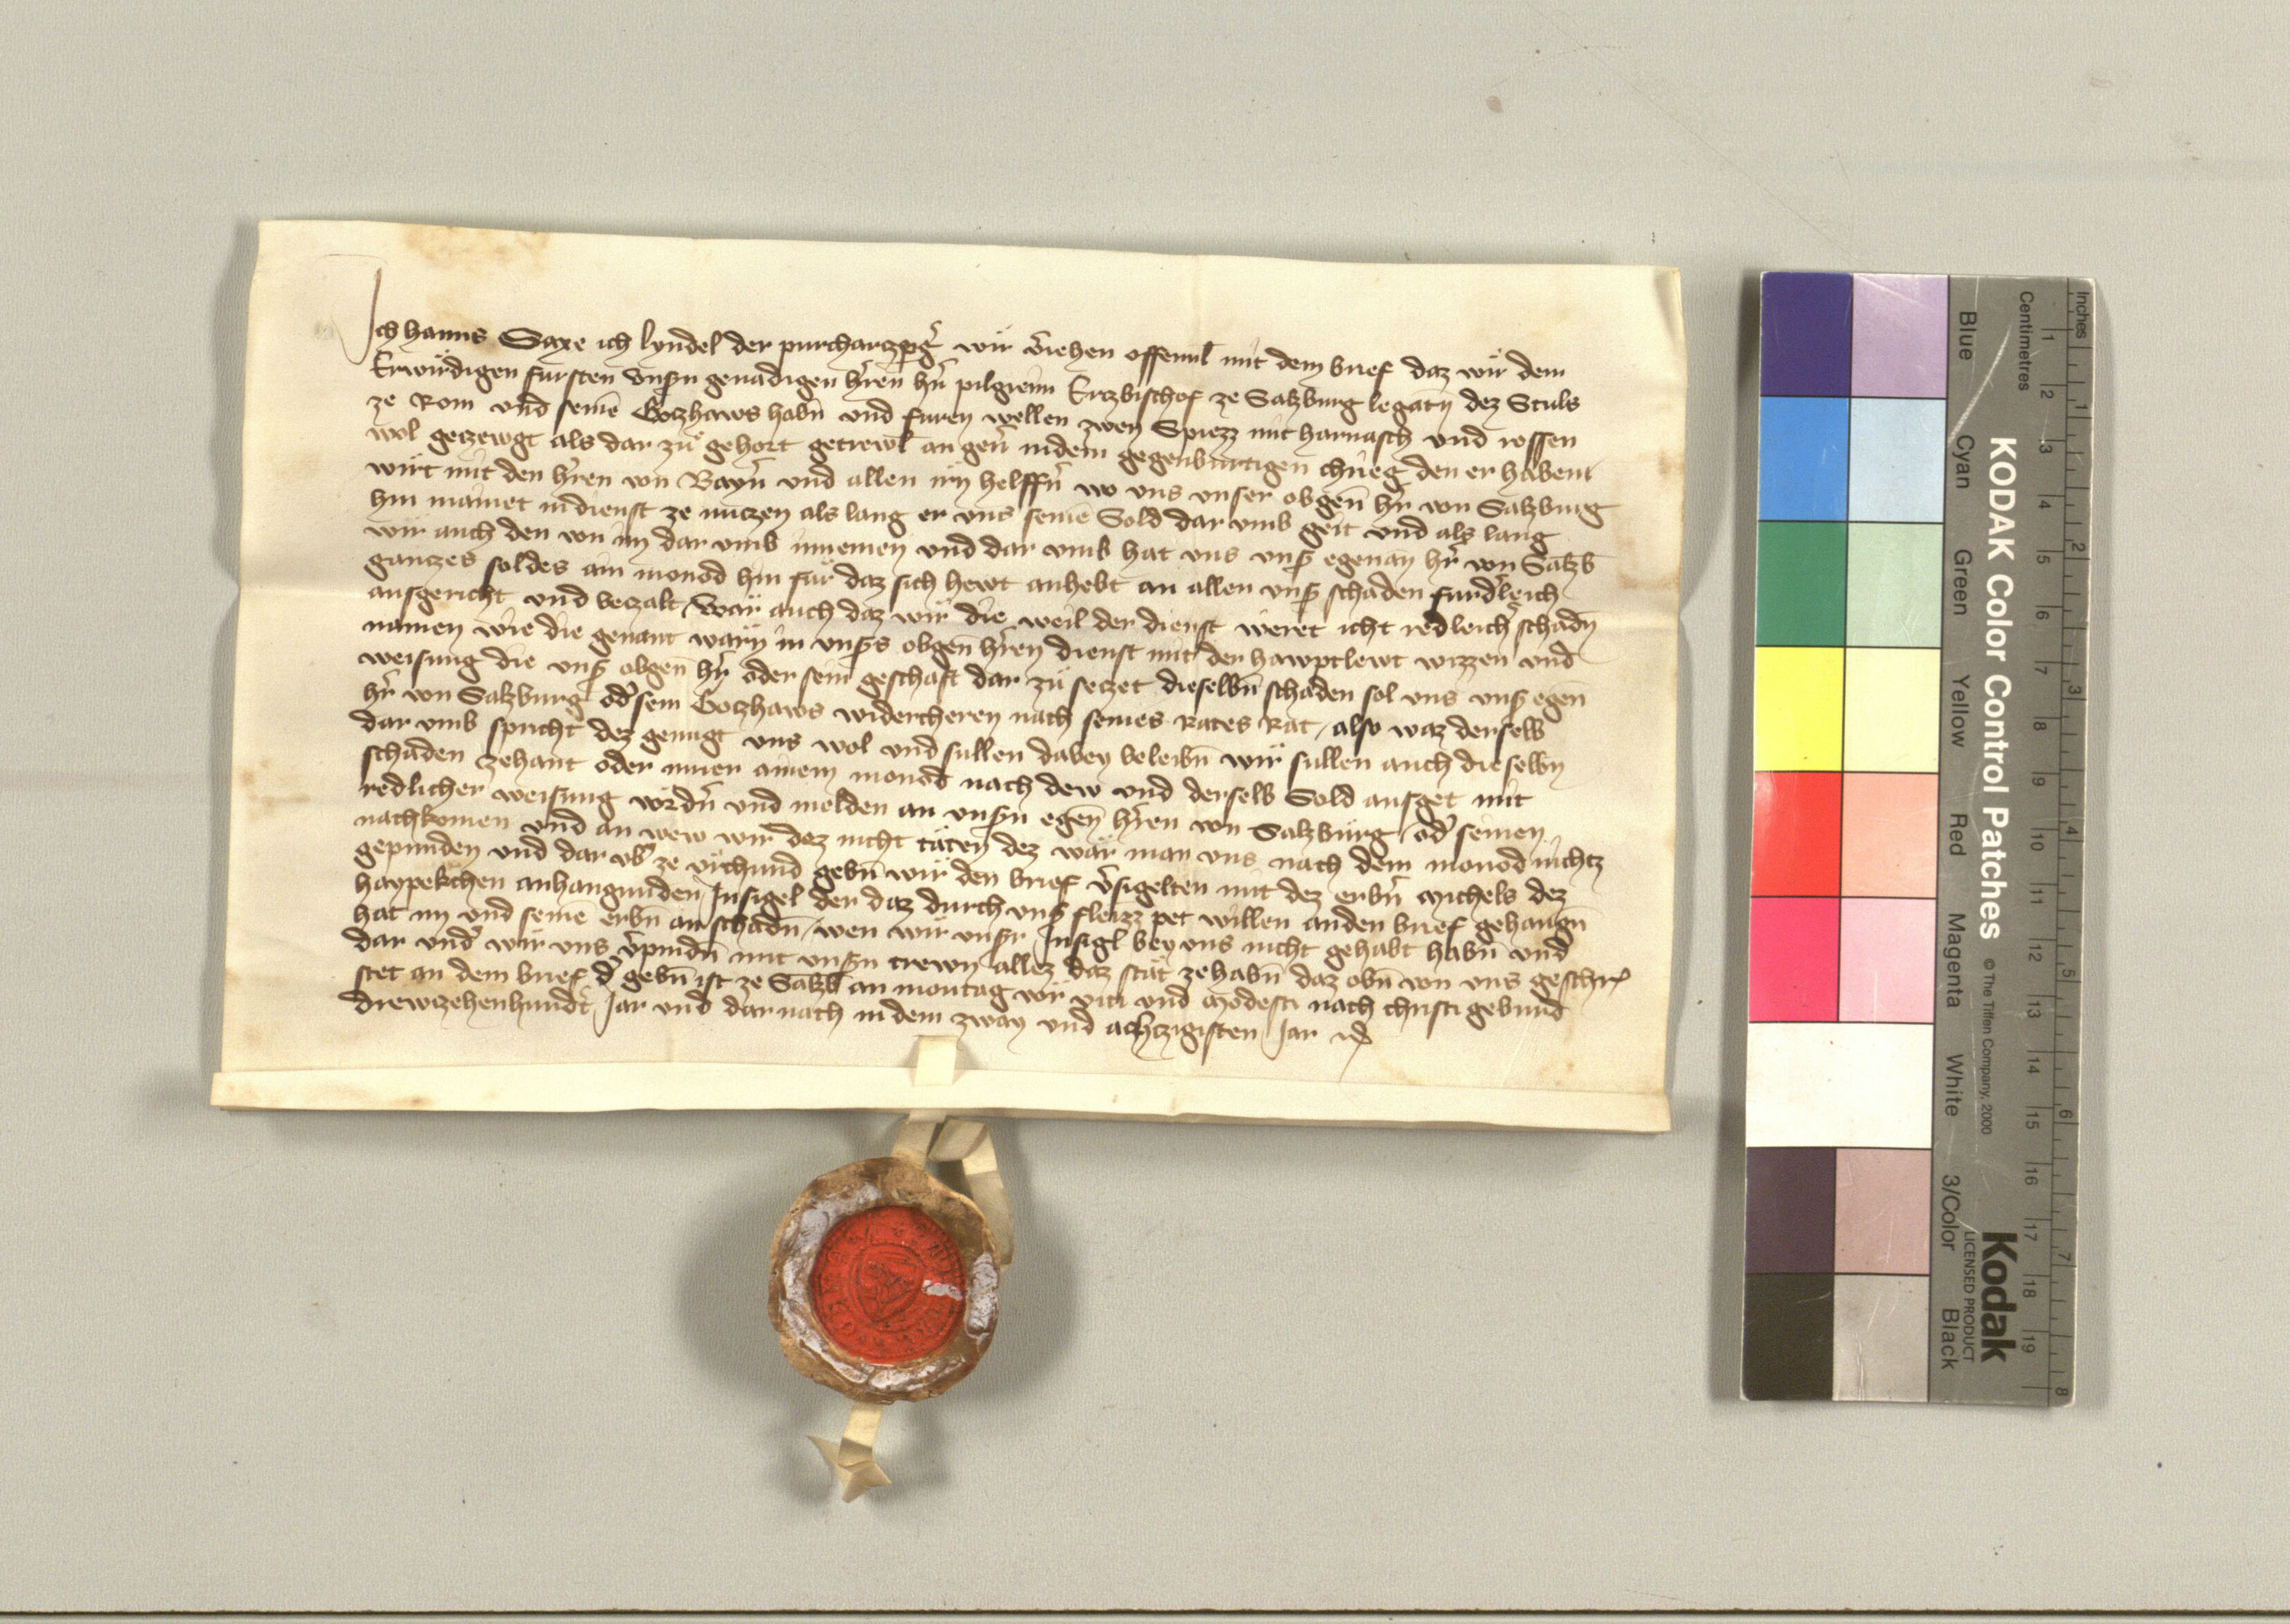 Ich hanns Saxe ich lyndel der purchartzpger wir veriehen offenml mit dem brief daz wir dem
Erwirdigen fursten unsern genadigen hren hn pilgreim Ertzbischof ze Saltzburg legatn dez Stuls
ze Rom und seine Gotzhaws habn und furen wellen zwen Spiezz mit harnasch und rossen
wol getzewgt als dar zu gehort getrewl an geuer in dem gegenburtigen chrieg den er habent
wirt mit den hren von Bayrn und allen irn helffern wo uns unser obgen her von Saltzburg
hin mainet in dienst ze nutzen als lang er uns seine Sold dar umb geit und als lang
wir auch den von im dar umb innemen und dar umb hat uns unser egenan her von Saltzb
gantzes soldes ain monod hin fur daz sich hewt anhebt an allen unser schaden furderleich
ausgericht und betzalt War auch daz wir die weil der dienst weret icht redleicher schadn
namen wie die genant warn in unsers obgen hren dienst mit der hawptlewt wizzen und
weisung die unser obgen her oder sein geschaft dar zu setzet dieselbn schaden sol uns unser egen
her von Saltzburg oder sein Gotzhaws widercheren nach seines Rates Rat also waz derselb
dar umb spricht dez genugt uns wol und sullen dabey beleibn wir sullen auch dieselbn
schaden zehant oder inner ainem monod nach dew und derselb Sold ausget mit
redlicher weisung vordern und melden an unsern egen hren von Saltzburg oder seinen
nachkomen und an wew wir dez nicht taten dez war man uns nach dem monod nichtz
gepunden und dar uber ze urchund gebn wir den brief versigelten mit dez erbern Michels dez
haypekchen anhangunden Insigel der daz durch unser fleizz pet willen an den brief gehangn
hat im und seine erbn an schadn wen wir unser Insigl bey uns nicht gehabt habn und
dar under wir uns verpindn mit unsern trewn allez daz stat ze habn daz obn von uns geschr
stet an dem brief der gebn ist ze Saltzb an montag vor viti und Modesti nach christi geburd
drewtzehenhundert Jar und darnach in dem zway und achtzigisten Jar
KODAK Color Control Patches
© The Tiffen Company, 2000
Kodak
LICENSED PRODUCT
Inches
Centimetres
Blue Cyan Green Yellow Red Magenta White 3/Color Black
1 2 3 4 5 6 7 8 9 10 11 12 13 14 15 16 17 18 19
1 2 3 4 5 6 7 8